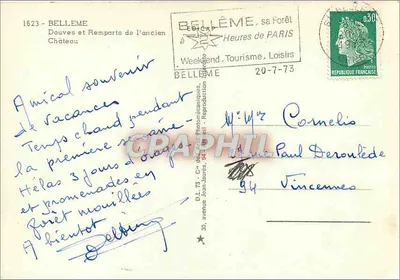 1623 - BELLEME
Douves et Remparts de l'ancien
Château
BELLÊME, sa Forêt
Heures de PARIS
Weekend, Tourisme, Loisirs
BELLEME 20-7-73
0,30
REPUBLIQUE FRANÇAISE
Amical souvenir
de vacances
Temps chaud pendant
la première semaine
Hélas 3 jours d'orage
et promenades en
forêt mouillées
A bientôt
Mr Mme Cornelis
Paul Deroulède
94 Vincennes
CARTORUM